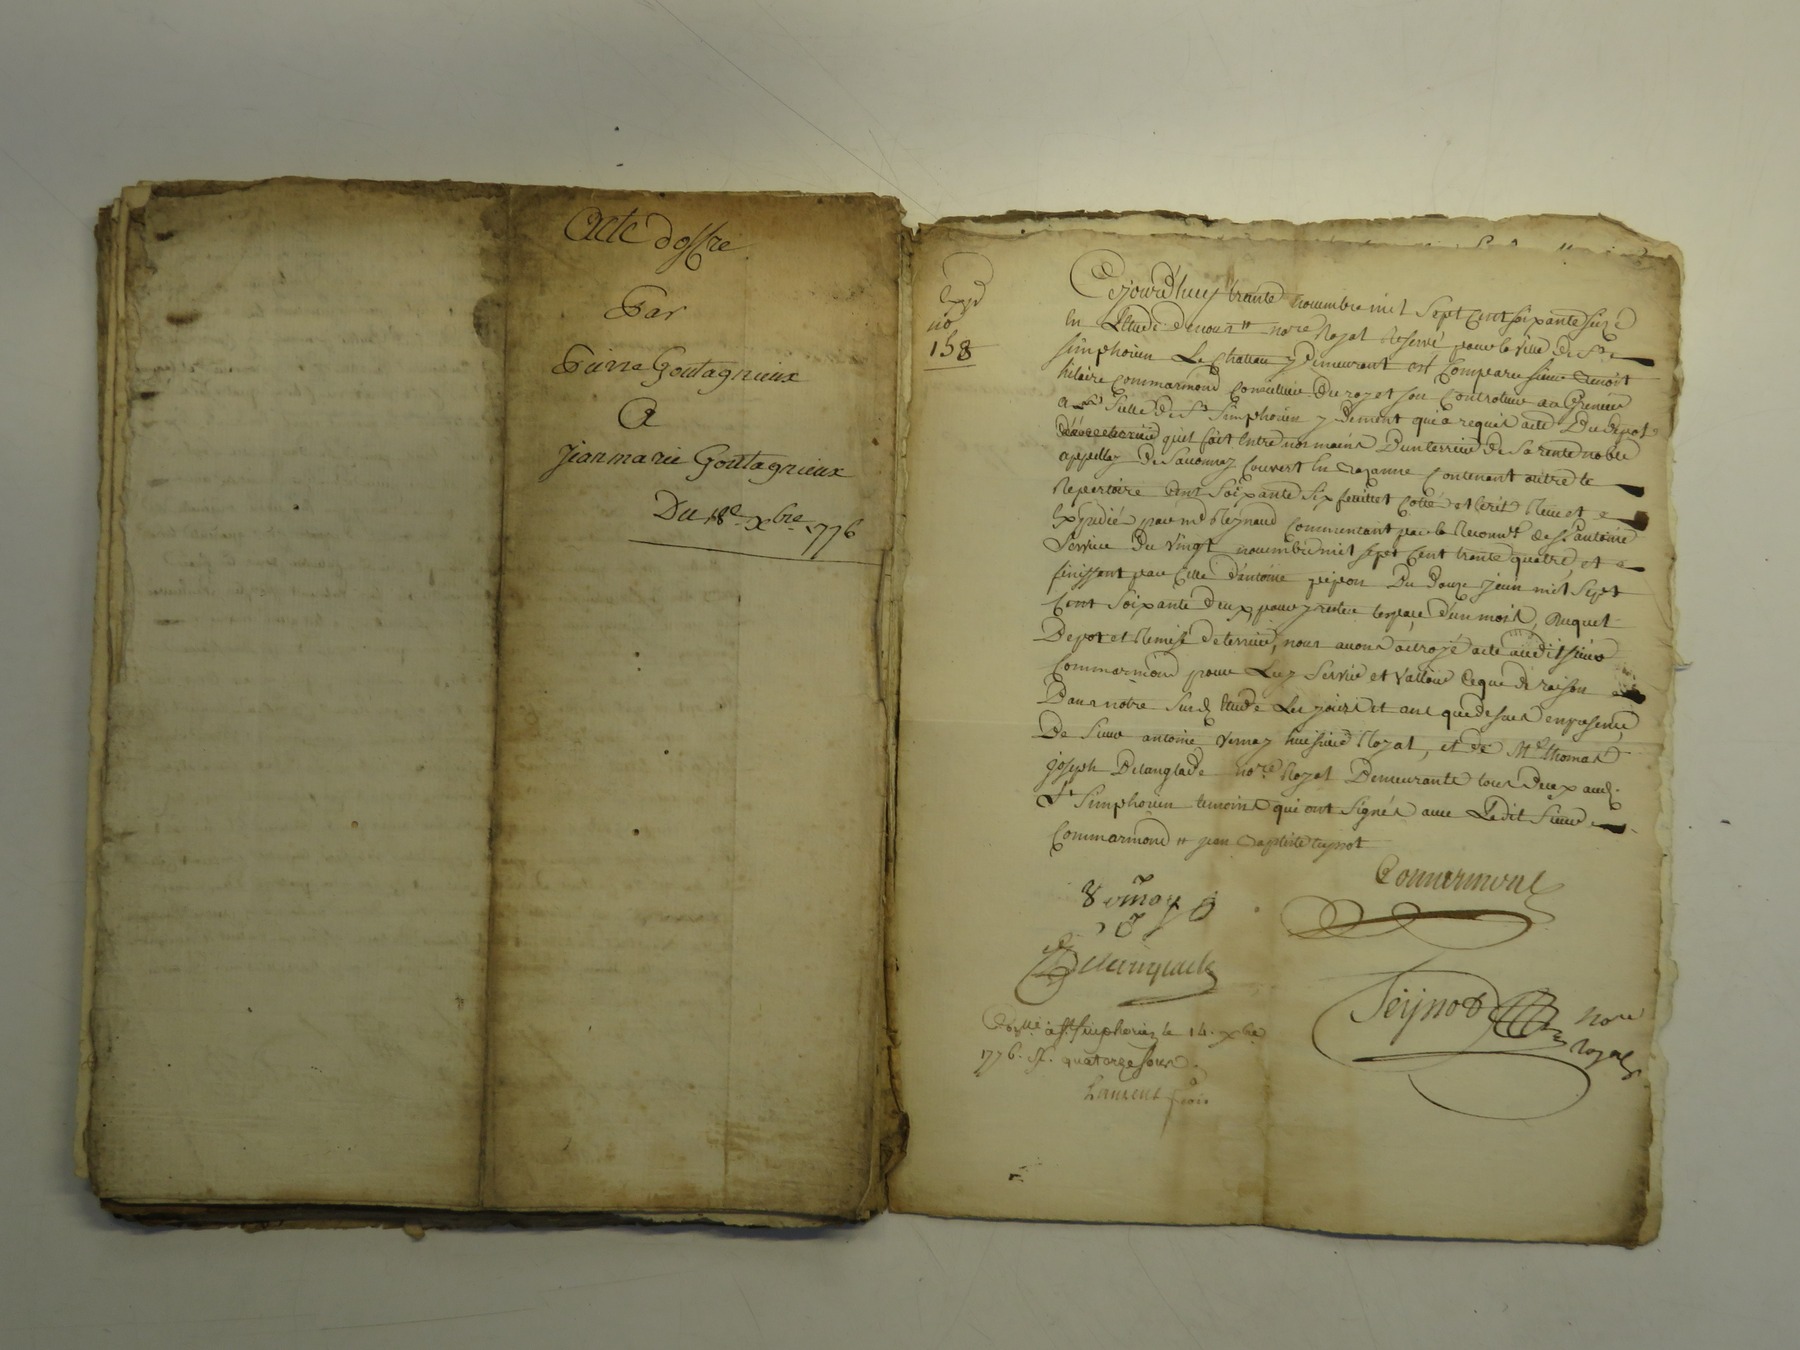 Acte d'offre
Par
Pierre Goutagnieux
A
Jean marie Goutagnieux
Du 18e Xbre 1776
Exp.d
no
158
Cejourd'huy trente novembre mil Sept Cent soixante seize
En L'Etude de nous no.re Royal Reservé pour la ville de St
simphorien Le Chateau y demeurant est Comparu sieur Benoit
hilaire Commarmond Conseiller Du roy et son Controleur au Grenier
a Sel de St Simphorien y Demeurt qui a requis acte Du depot
qu'il fait Entre nos mains D'un terrier de Sa rente noble
appellez De Savonnaz Couvert En Bazanne Contenant outre le
Repertoire Cent Soixante Six feuillet Cotté et Ecrit Reçu et
Expedié par me Reynaud Commencant par la Reconnce de St antoine
Du Vingt novembre mil sept Cent trente quatre et
finissant par Celle d'antoine pipon Du Douze Juin mil Sept
Cent Soixante deux, pour y rester l'espace d'un mois, Duquel
Depot et Remise de terrier, nous avons octroyé acte audit sieur
Commarmond pour Luy Servir et Valloir Ce que de raison
Dans notre Susd. Etude Les jours et ans que dessus en presence
De Sieur antoine Vernay huissier Royal, et de Me thomas
joseph Delanglade no.re Royal Demeurants tous Deux aud.
St Simphorien temoins qui ont Signés avec Ledit Sieur
Commarmond et jean Baptiste teynot
Commarmond
Vernay
Delanglade
Teynot no.re
Royal
Con.lé à St. Simphorien le 14. Xbre
1776. R. quatorze sous.